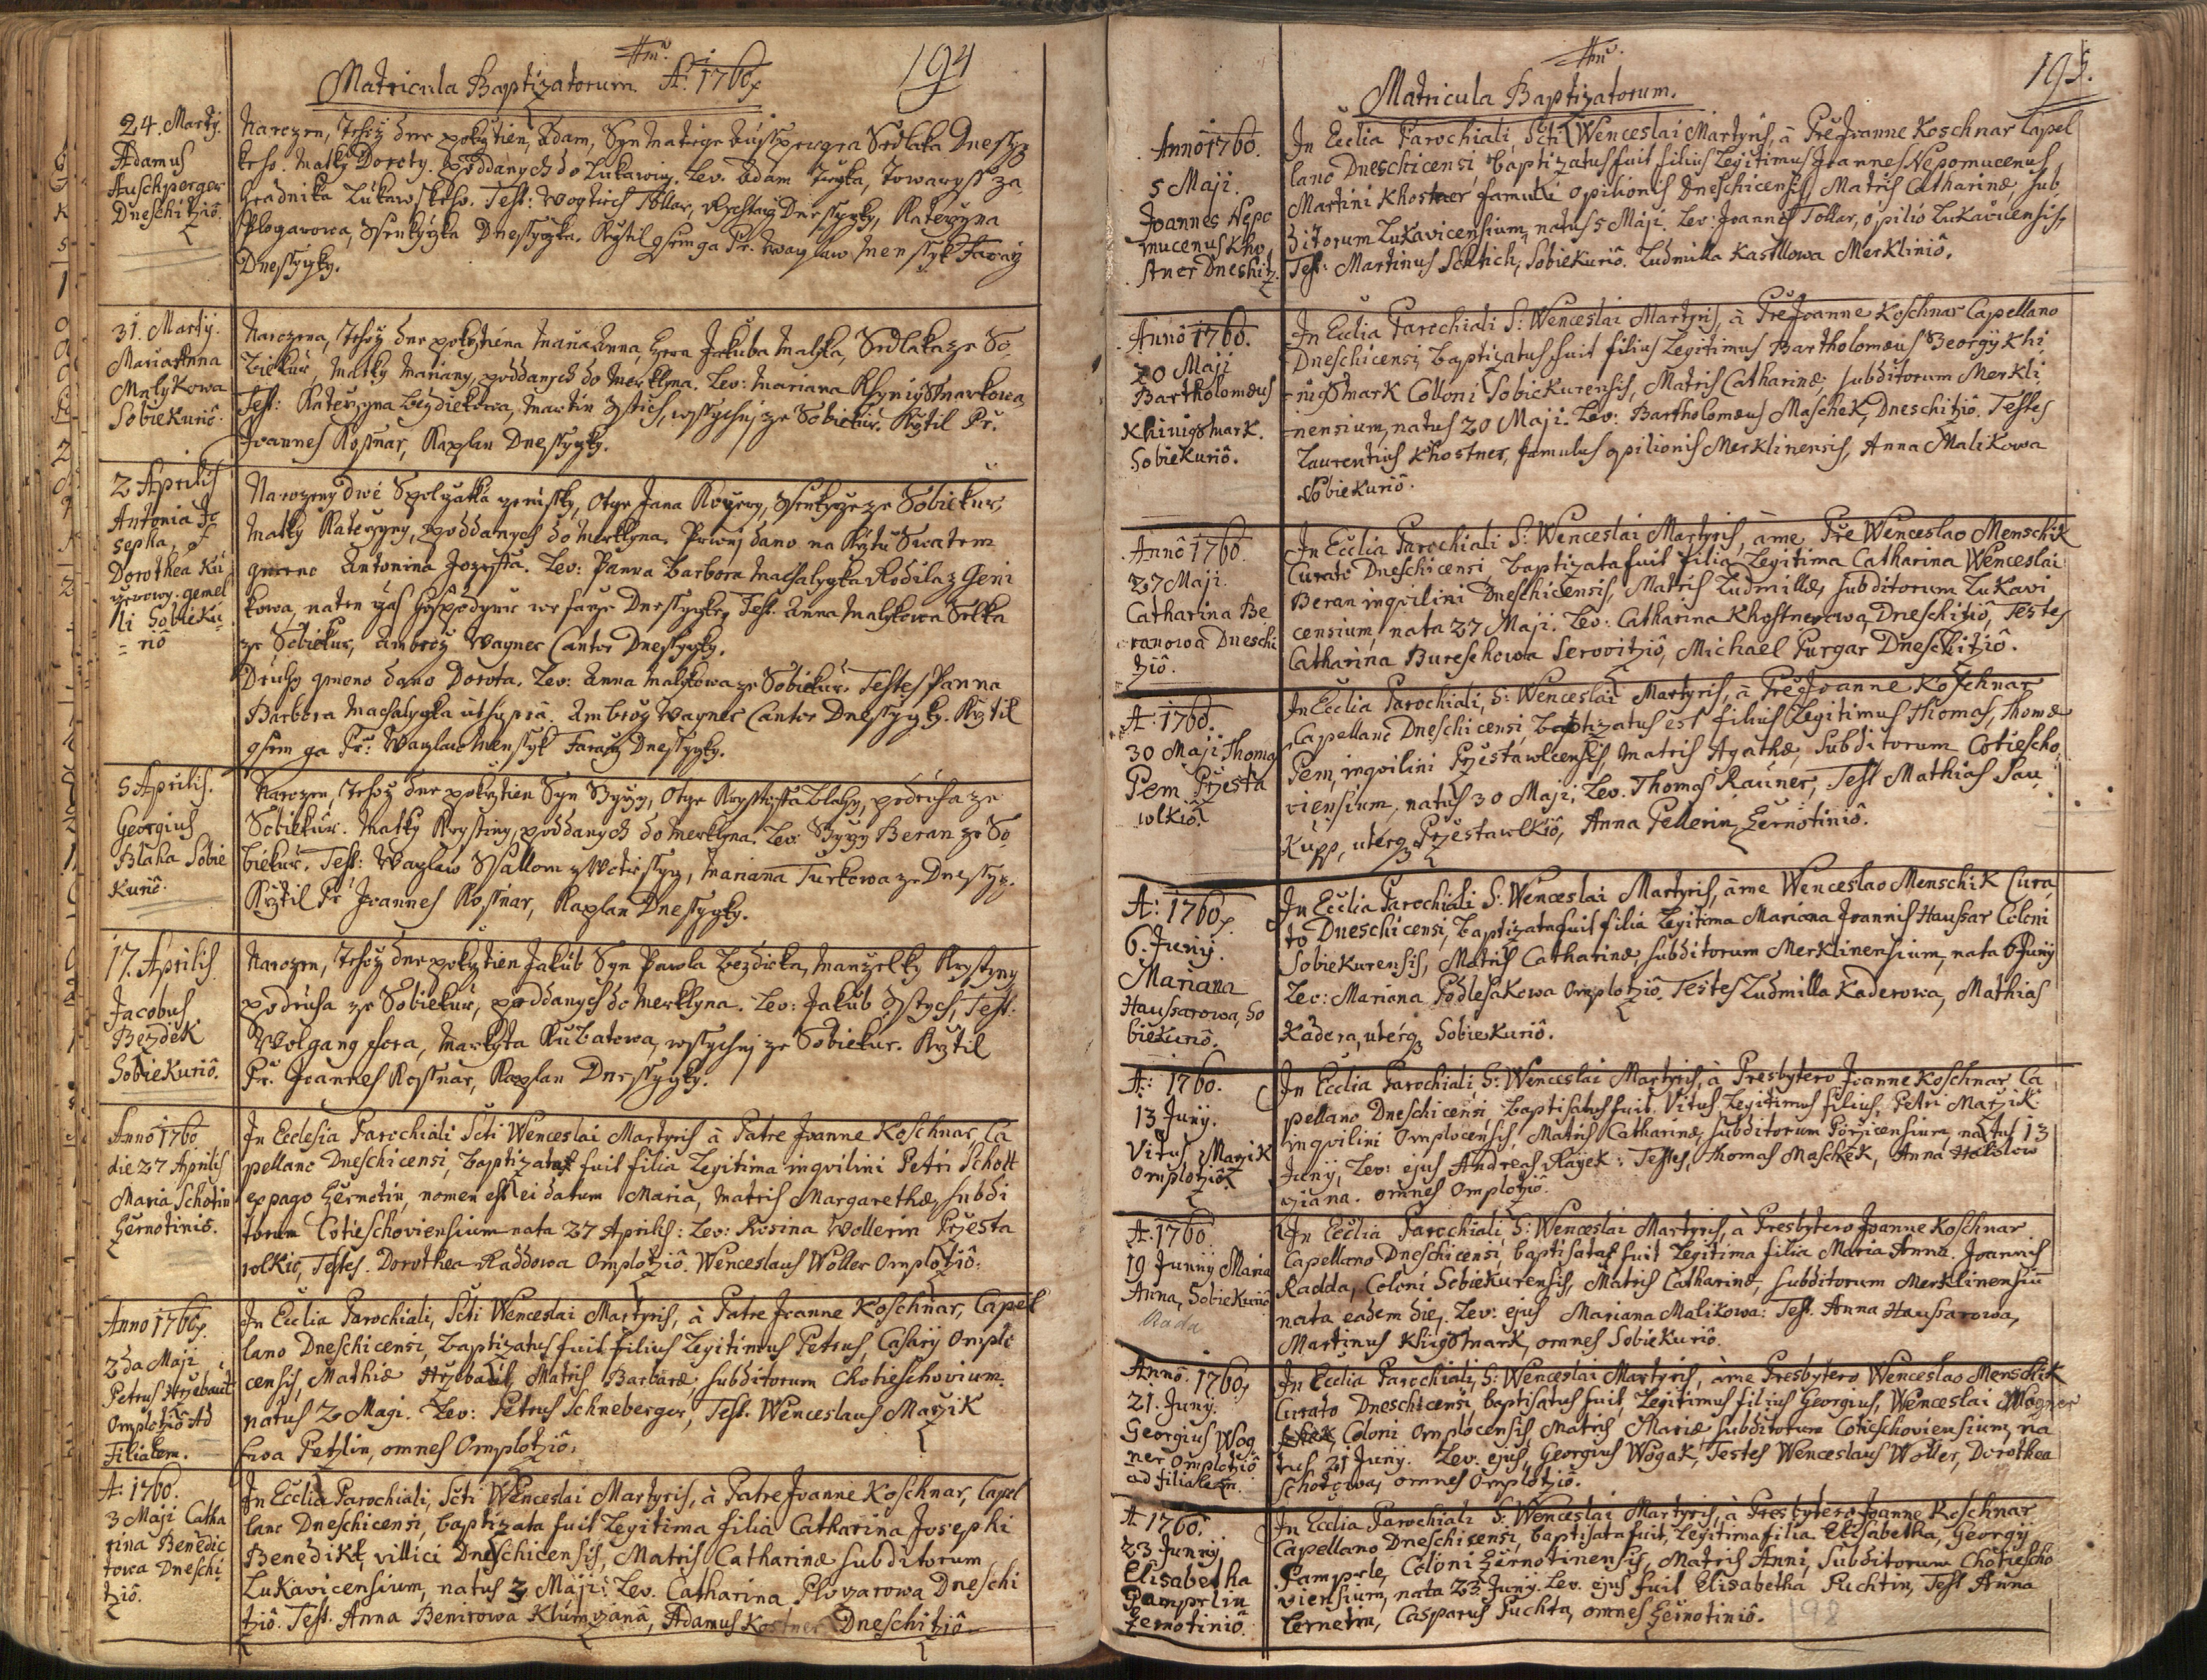 Matricula Baptizatorum. A: 1760.
194
24. Martij.
Adamus
Auschperger
Dneschitziô.
Narozen, tehoz dne pokrztien, Adam, Syn
Sedlaka Dnessyz
keho. Matky Doroty. poddanych do Lukawicz. Lev. Adam
Towaryss za
hradnika Lukawskeho. Test: Wogtiech Tollar, Rychtarz Dnessyczky, Katerzyna
Dnessyczka. Krztil gsem ga Pr. Waczlaw Menssyk Faraz
Dnessyczky.
31. Martij.
Maria Anna
Malykowa
Sobiekuriô.
Narozena, tehoz dne pokrztiena Maria Anna, Czera Jakuba Malyka, Sedlaka ze So
biekur, Matky Mariany, poddanych do Merklyna. Lev: Mariana
Test: Katerzyna Bezdiekowa, Martin
wssyckny ze Sobiekur. Krztil Pr.
Joannes Kossnar, Kaplan Dnessyczky.
2 Aprilis
Antonia Jo
sepha, F
Dorothea Ku
gemel
li Sobieku
= riô
Narozeny dwě
Otcze Jana
ze Sobiekur,
Matky Katerzyny, poddanych do Merklyna. Prwnj dano na Krztu Swatem
gmeno Antonina Jozeffa. Lev: Panna Barbora
kowa, na ten czas Hospodynie we farze Dnessyczky, Test. Anna Malykowa Selka
ze Sobiekur, Ambroz Wagner Cantor Dnessyczky.
Druhy gmeno dano Dorota. Lev: Anna Malykowa ze Sobiekur. Testes Panna
Barbora
ut supra. Ambroz Wagner Cantor Dnessyczky. Krztil
gsem ga Pr: Waczlaw Menssyk Faraz Dnessyczky.
5 Aprilis.
Georgius
Blaha Sobie
Kuriô.
Narozen, tehoz dne pokrztien Syn Gyrzy, Otcze Krysstoffa Blahy, podruha ze
Sobiekur. Matky Krystiny, poddanych do Merklyna. Lev: Gyrzy Beran ze So
biekur. Test: Waczlaw
Mariana Turkowa ze Dnessycz.
Krztil Pr Joannes Kossnar, Kaplan Dnessyczky.
17. Aprilis
Jacobus
Bezdek
Sobiekuriô.
Narozen, tehoz dne pokrztien Jakub Syn Pawla Bezdieka, Manzelky Krystyny
podruha ze Sobiekur, poddanych do Merklyna. Lev: Jakub
Test:
Wolgang
Markyta Kubatowa, wssyckny ze Sobiekur. Krztil
Pr. Joannes Kossnar, Kaplan Dnessyczky.
Anno 1760
die 27 Aprilis
Maria Schotin
Zernotinio.
In Ecclesia Parochiali Scti Wenceslai Martyris à Patre Joanne Koschnar, Ca
pellano Dneschicensi, baptizata fuit filia Legitima inqvilini Petri Schott
ex pago Zernotin, nomen est ei datum Maria, Matris Margarethæ, subdi
torum Cotieschoviensium nata 27 Aprilis: Lev: Rosina Wollerin Przesta
wlkio, Testes. Dorothea Raddowa Omplotziô. Wenceslaus Woller Omplotziô.
Anno 1760.
2da Maji
Petrus Hrzebaut
Omplotziô ad
Filialem.
In Ecclia Parochiali, Scti Wenceslai Martyris, à Patre Joanne Koschnar, Capel
lano Dneschicensi, baptizatus fuit filius Legitimus Petrus, Casarij Omplo
censis, Mathiæ Hrzebaut, Matris Barbaræ, subditorum Chotieschovium.
natus 2 Magi. Lev: Petrus Schneberger, Test. Wenceslaus Mazik
Ewa Petzlin, omnes Omplotziô.
A: 1760.
3 Maji Catha
rina Benedic
towa Dneschi
tziô.
In Ecclia Parochiali, Scti Wenceslai Martyris, à Patre Joanne Koschnar, Capel
lano Dneschicensi, baptizata fuit Legitima filia Catharina Josephi
Benedikt, villici Dneschicensis, Matris Catharinæ subditorum
Lukavicensium, natus 3 Maji: Lev. Catharina Plozarowa Dneschi
tziô. Test. Anna Benirowa
Adamus Kostner Dneschitziô
Matricula Baptizatorum.
195.
Anno 1760.
5 Maji.
Joannes Nepo
mucenus Kho
stner Dneshitz.
In Ecclia Parochiali, Scti Wenceslai Martyris, à Pre Joanne Koschnar Capel
lano Dneschicensi, baptizatus fuit filius Legitimus Joannes Nepomucenus
Martini Khostner famuli opilionis Dneschicensis, Matris Catharinæ, sub
ditorum Lukavicensium, natus 5 Maji. Lev: Joannes Tollar, opilio Lukavicensis,
Test: Martinus Schtich, Sobiekuriô. Ludmilla Kastllowa Merkliniô.
Anno 1760.
20 Maji
Bartholomæus
Khinigsmark.
Sobiekuriô.
In Ecclia Parochiali S: Wenceslai Martyris, à Pre Joanne Koschnar Capellano
Dneschicensi, baptizatus fuit filius Legitimus Bartholomæus Georgij Khi
nigsmark Colloni Sobiekurensis, Matris Catharinæ, subditorum Merkli
nensium, natus 20 Maji. Lev: Bartholomæus Maschek, Dneschitziô. Testes
Laurentius Khostner, famulus opilionis Merklinensis, Anna Malikowa
Sobiekuriô.
Anno 1760
27 Maji.
Catharina Be
ranowa Dneschi
tziô.
In Ecclia Parochiali S: Wenceslai Martyris, à me Pre Wenceslao Menschik
Curato Dneschicensi baptizata fuit filia Legitima Catharina Wenceslai
Beran inqvilini Dneschicensis, Matris Ludmillæ, subditorum Lukavi
censium, nata 27 Maji. Lev: Catharina Khostnerowa, Dneschitziô, Testes
Catharina Bureschowa Serovitziô, Michael Purgar Dneschitziô.
A: 1760.
30 Maji Thomas
Pem Przesta
wlkiô.
In Ecclia Parochiali, S: Wenceslai Martyris, à Pre Joanne Koschnar
Capellano Dneschicensi, baptizatus est filius Legitimus Thomas, Thomæ
Pem, inqvilini Przestawlcensis, Matris Agathæ, subditorum Cotiescho
viensium, natus 30 Maji, Lev. Thomas Rauner, Test Mathias Sau
Kupp, uterq Przestawlkiô, Anna Pellerin Zernotiniô.
A: 1760.
6. Junij.
Mariana
Haussarowa, So
biekuriô.
In Ecclia Parochiali S: Wenceslai Martyris, à me Wenceslao Menschik Cura
to Dneschicensi, baptizata fuit filia Legitima Mariana Joannis Haussar Coloni
Sobiekurensis, Matris Catharinæ, subditorum Merklinensium, nata 6 Junij
Lev: Mariana Podlesakowa Omplotziô. Testes Ludmilla Kaderowa, Mathias
Kadera, uterq Sobiekuriô.
A: 1760.
13 Junij.
Vitus Mazik
Omplotziô.
In Ecclia Parochiali, S: Wenceslai Martyris, à Presbytero Joanne Koschnar Ca
pellano Dneschicensi, baptisatus fuit. Vitus, Legitimus filius, Petri Mazik
inqvilini Omplocensis, Matris Catharinæ, subditorum Porzicensium, natus 13
Junij, Lev: ejus Andreas Rayek: Testes, Thomas Maschek, Anna
omnes Omplotziô.
A: 1760
19 Junij Maria
Anna, Sobiekuriô
Rada
In Ecclia Parochiali, S: Wenceslai Martyris, à Presbytero Joanne Koschnar
Capellano Dneschicensi, baptisata fuit Legitima filia Maria Anna. Joannis
Radda, Coloni Sobiekurensis, Matris Catharinæ, subditorum Merklinensiu
nata eadem die. Lev: ejus Mariana Malikowa: Test. Anna Haussarowa,
Martinus Khigsmark, omnes Sobiekuriô.
Anno. 1760,
21. Juny.
Georgius Wog
ner Omplotziô
ad filialem.
In Ecclia Parochiali, S: Wenceslai Martyris, à me Presbytero Wenceslao Menschik
Curato Dneschicensi, baptisatus fuit, Legitimus filius Georgius, Wenceslai Wogner
Coloni Omplocensis, Matris Mariæ subditorum Cotieschoviensium, na
tus 21 Juny. Lev: ejus, Georgius Wogak, Testes Wenceslaus Woller, Dorothea
Schotowa, omnes Omplotziô.
A 1760.
23 Junij
Elisabetha
Pamprlin
Zernotiniô.
In Ecclia Parochiali S: Wenceslai Martyris, à Presbytero Joanne Koschnar
Capellano Dneschicensi, baptisata fuit, Legitima filia Elisabetha, Georgij
Pamprle, Coloni Zernotinensis, Matris Anni, subditorum Chotiescho
viensium, nata 23. Junij. Lev. ejus fuit Elisabetha Puchtin, Test Anna
Cernetin, Casparus Puchta, omnes Zernotiniô.
198